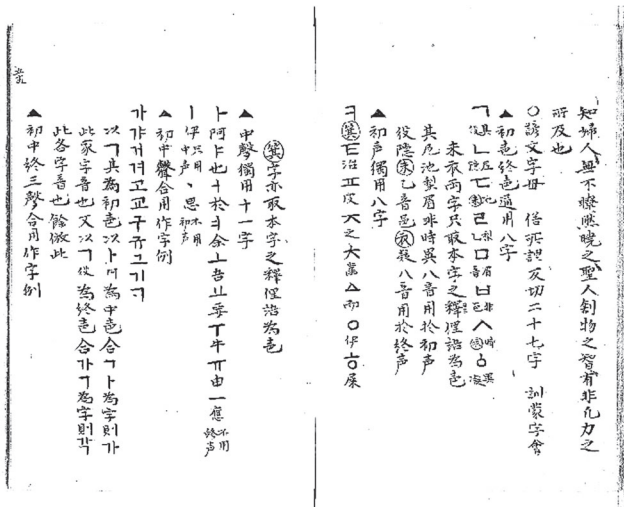 知婦人無不瞭然曉之聖人創物之智有非凡力之
所及也
○諺文字母 俗所謂反切二十七字 訓蒙字會
▲初声終声通用八字
ㄱ其役ㄴ尼隱ㄷ池末ㄹ梨乙ㅁ眉音ㅂ非邑ㅅ時衣ㆁ異凝
末衣兩字只取本字之釋俚語為声
其尼池梨眉非時異八音用於初声
役隱末乙音邑衣凝八音用於終声
▲初声獨用八字
ㅋ箕ㅌ治ㅍ皮ㅈ之ㅊ齒ㅿ而ㅇ伊ㅎ屎
箕字亦取本字之釋俚語為声
▲中聲獨用十一字
ㅏ阿ㅑ也ㅓ於ㅕ余ㅗ吾ㅛ要ㅜ牛ㅠ由ㅡ應不用終声
ㅣ伊只用中声ㆍ思不用初声
▲初中聲合用作字例
가갸거겨고교구규그기ᄀᆞ
以ㄱ其為初声以ㅏ阿為中声合ㄱㅏ為字則가
此家字音也又以ㄱ役為終声合가ㄱ為字則각
此各字音也餘倣此
▲初中終三聲合用作字例